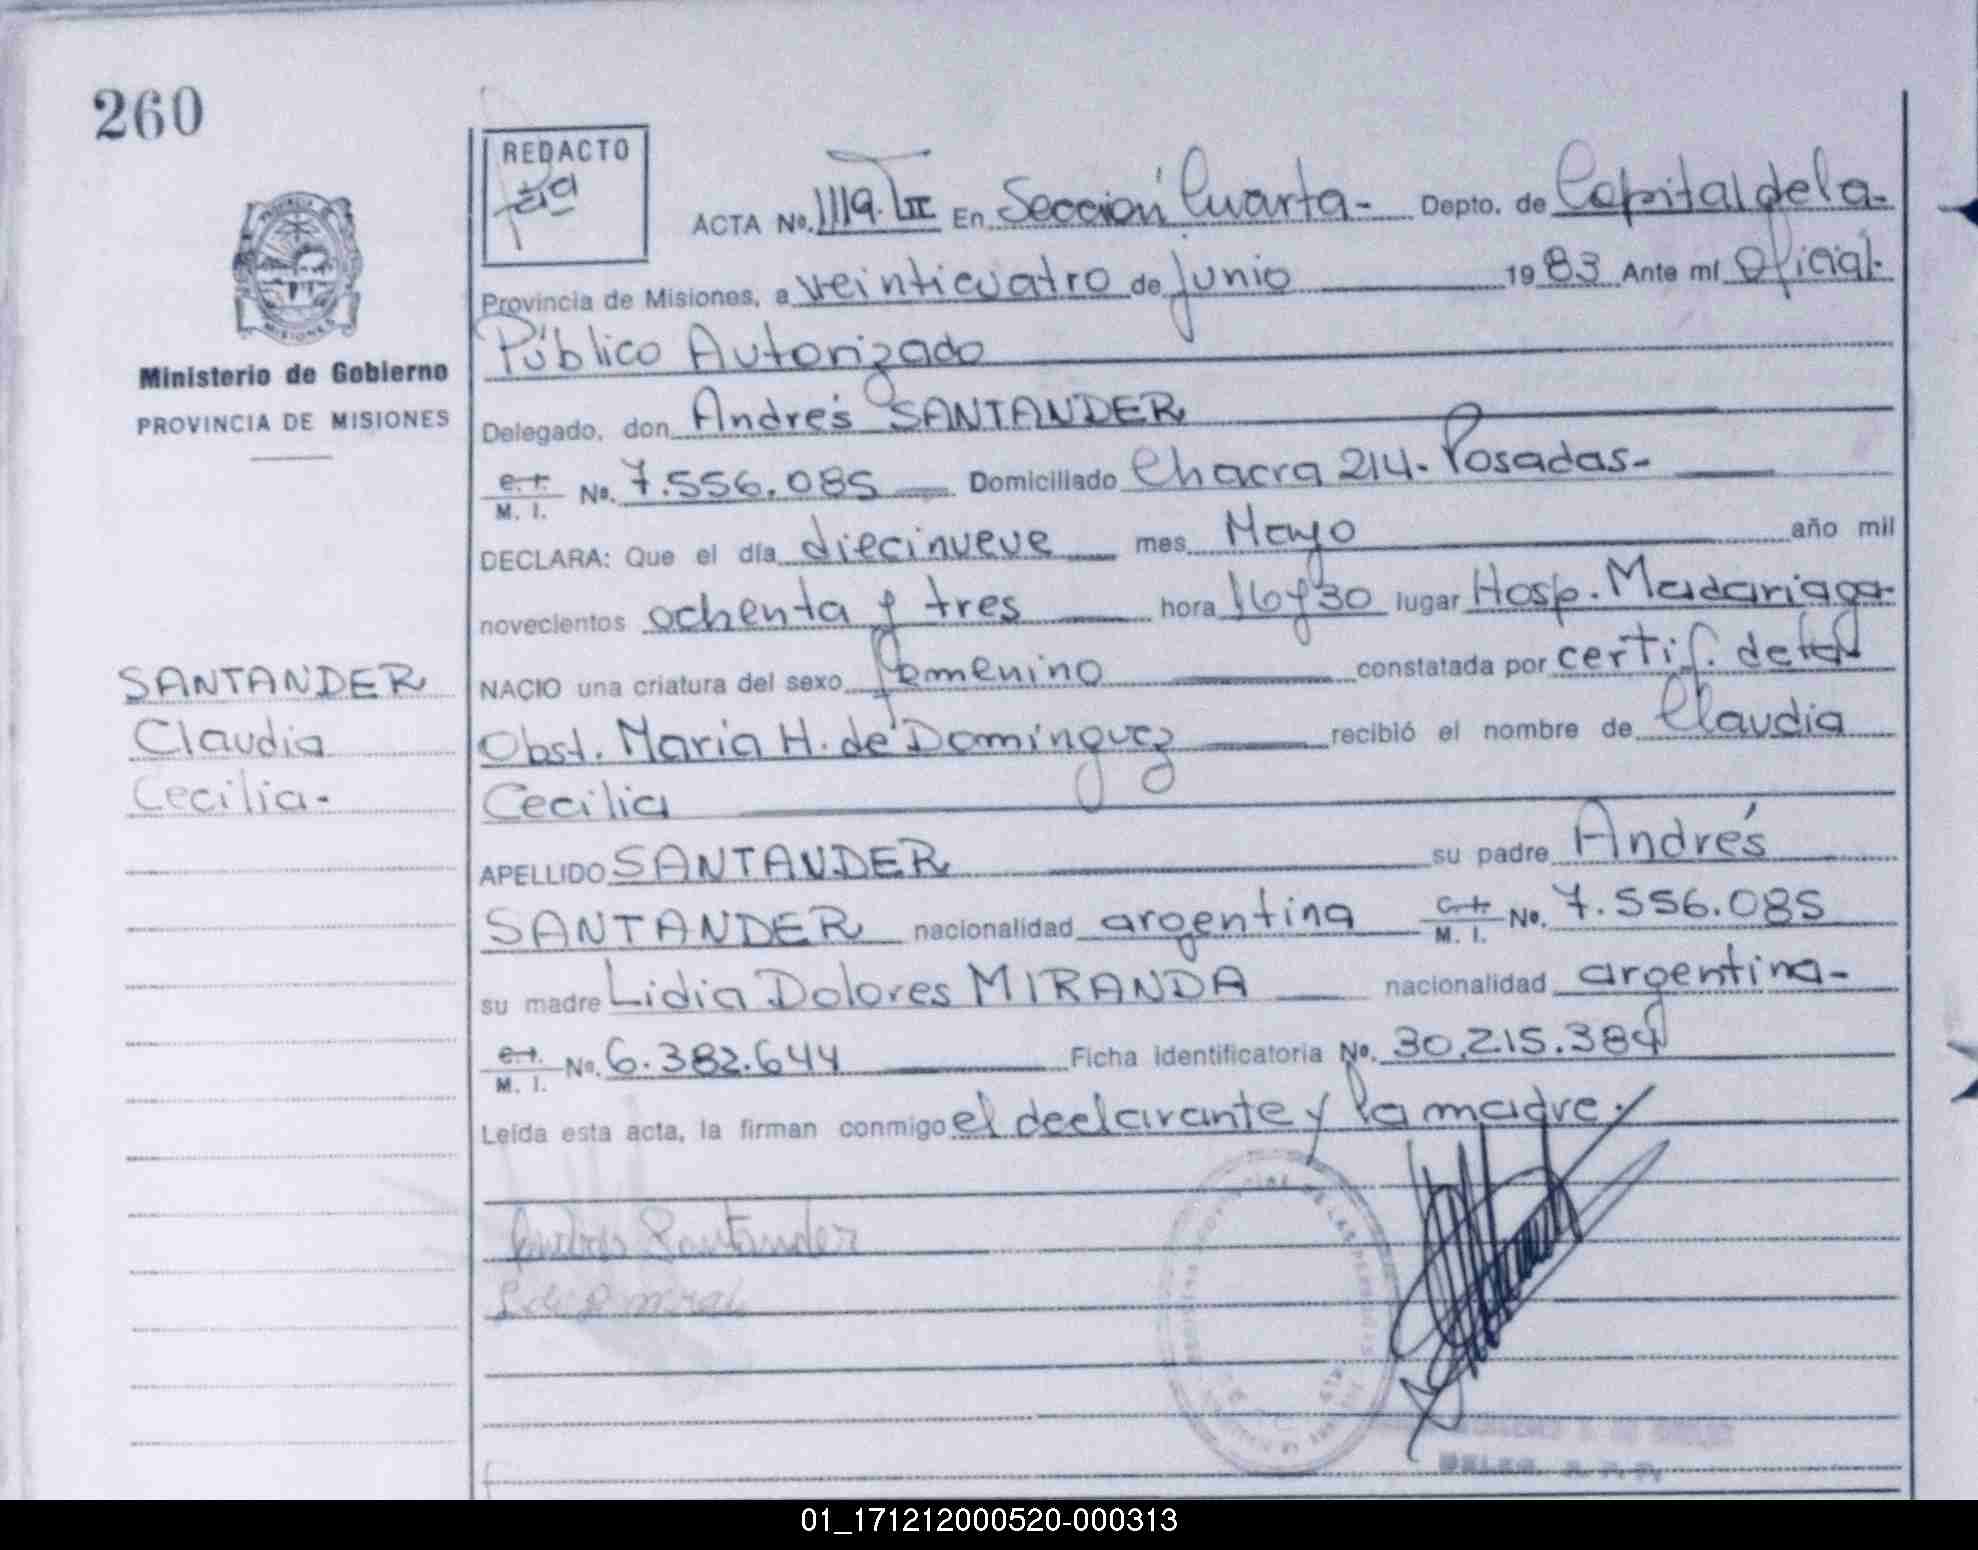 260
REDACTO
ACTA No. 1119. TII En Sección Cuarta- Depto. de Capital de la-
Provincia de Misiones, a veinticuatro de junio 1983 Ante mí Oficial
Público Autorizado
Ministerio de Gobierno
PROVINCIA DE MISIONES
Delegado, don Andrés SANTANDER
M. I. No. 7.556.085 Domiciliado Chacra 214. Posadas-
DECLARA: Que el día diecinueve mes Mayo año mil
novecientos ochenta y tres hora 16y30 lugar Hosp. Madariaga-
NACIO una criatura del sexo femenino constatada por certif. de la
Obst. Maria H. de Dominguez recibió el nombre de Claudia
Cecilia
SANTANDER
Claudia
Cecilia-
APELLIDO SANTANDER su padre Andrés
SANTANDER nacionalidad argentina M. I. No. 7.556.085
su madre Lidia Dolores MIRANDA nacionalidad argentina-
M. I. No. 6.382.644 Ficha identificatoria No. 30.215.384
Leída esta acta, la firman conmigo el declarante y la madre.
Santander
01_171212000520-000313